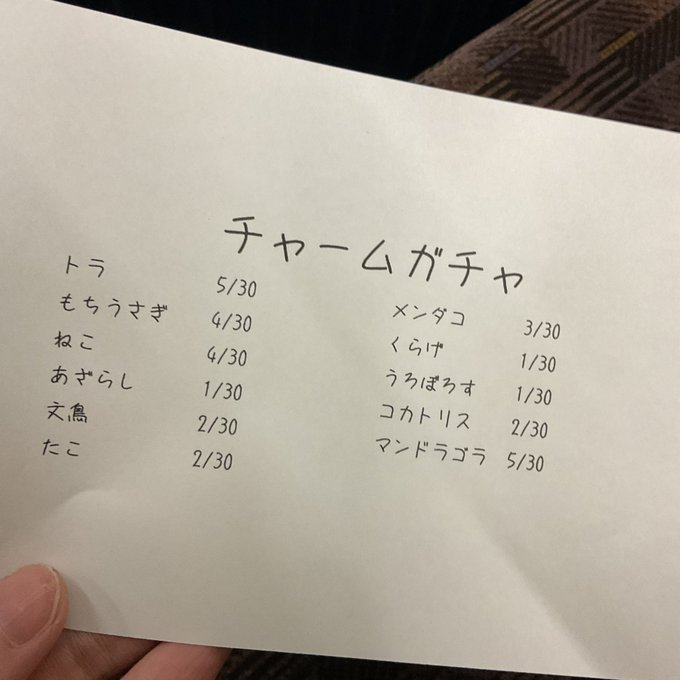 チャームガチャ
トラ 5/30
もちうさぎ 4/30
ねこ 4/30
あざらし 1/30
文鳥 2/30
たこ 2/30
メンダコ 3/30
くらげ 1/30
うろぼろす 1/30
コカトリス 2/30
マンドラゴラ 5/30